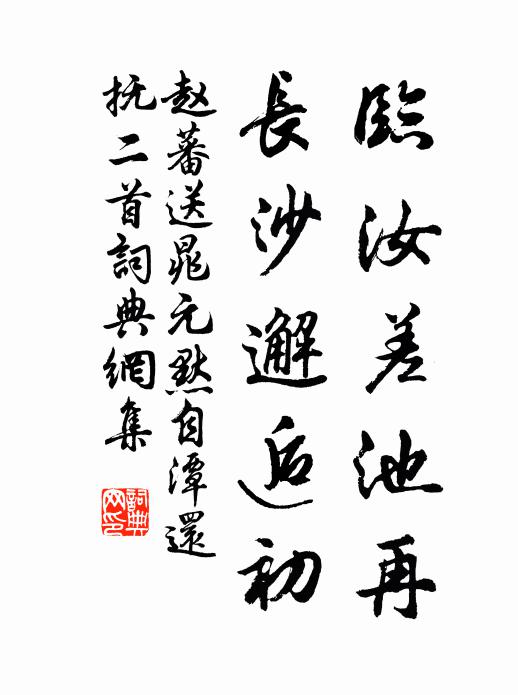 臨汝差池再
長沙邂逅初
赵蕃送晁元默自潭還
抚二首詞典網集
詞典
网印